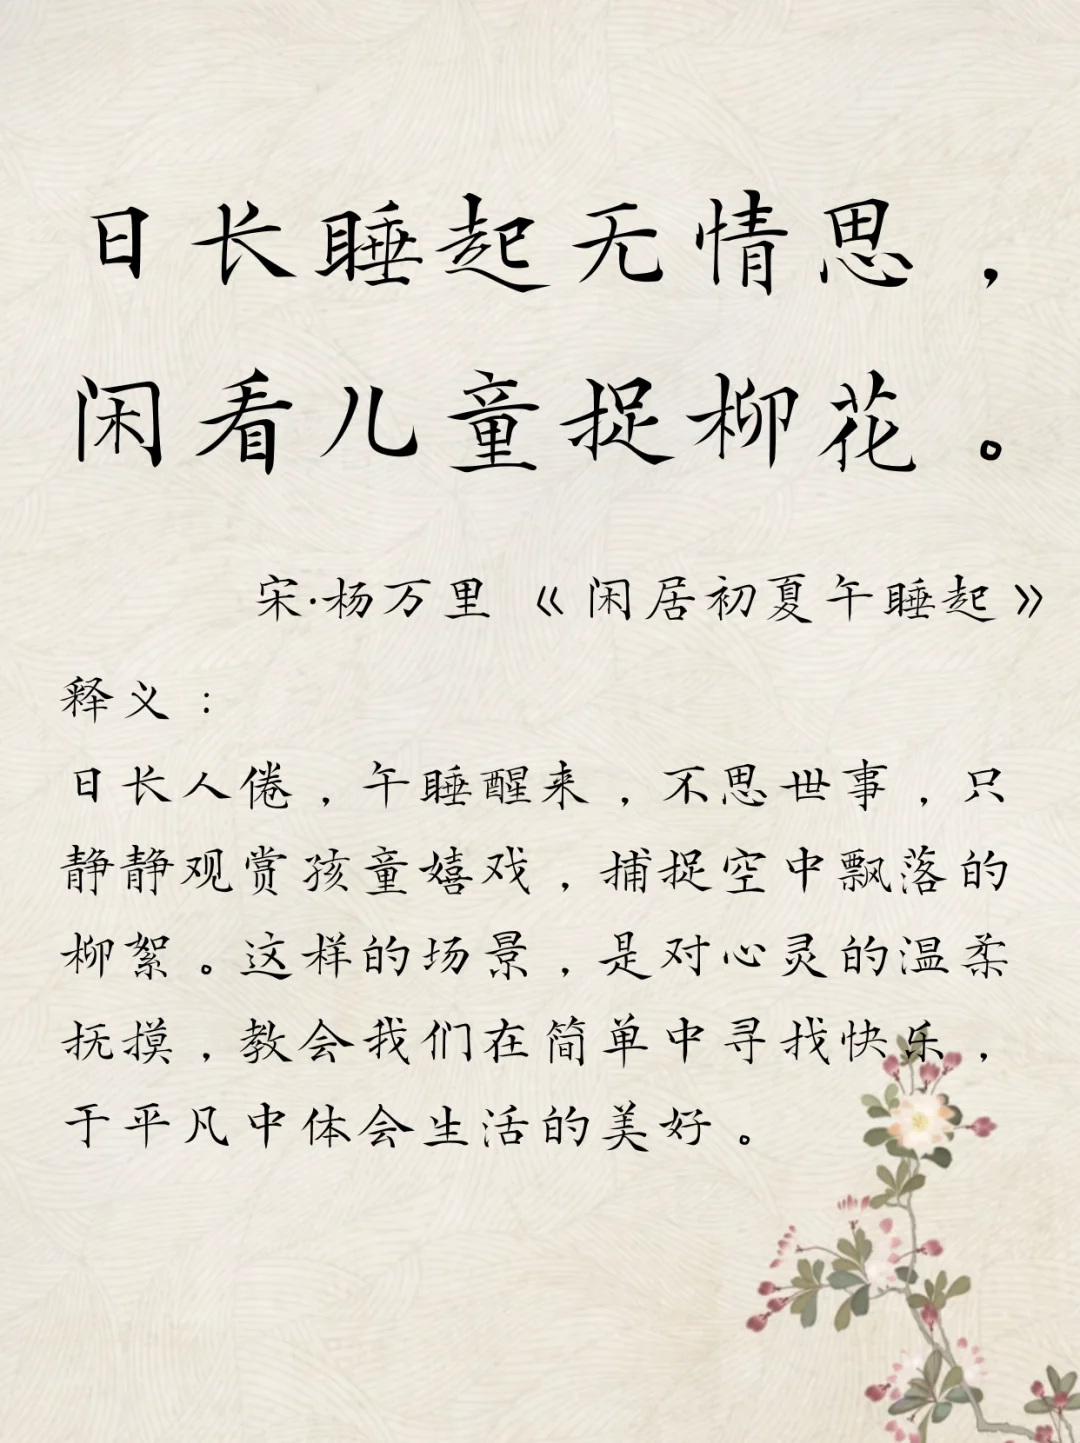 日长睡起无情思，
闲看儿童捉柳花。
宋·杨万里《闲居初夏午睡起》
释义：
日长人倦，午睡醒来，不思世事，只
静静观赏孩童嬉戏，捕捉空中飘落的
柳絮。这样的场景，是对心灵的温柔
抚摸，教会我们在简单中寻找快乐，
于平凡中体会生活的美好。